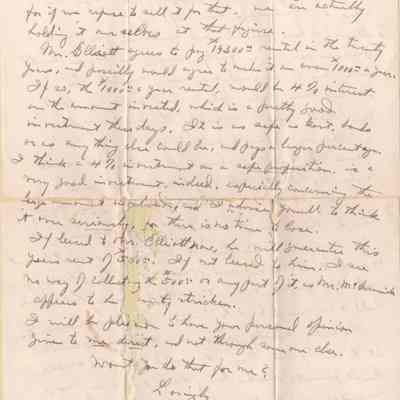 for if we refuse to sell it for that. we are actually
holding it ourselves at that figure.
Mr. Elliott agrees to pay $9300 rental in the twenty
years, and possibly would agree to make it an even $1000 a year.
If so, the $1000 a year rental, would be 4% interest
on the amount invested, which is a pretty good
investment these days. It is as safe as Govt. bonds
or as any thing else could be, and pays a larger percentage.
I think a 4% investment on a safe proposition is a
very good investment, indeed, especially concerning the
large amount involved, and I advise you all to think
it over seriously, for there is no time to lose.
If leased to Mr. Elliott now, he will guarantee this
years rent of $500. If not leased to him, I see
no way of collecting the $500 or any part of it, as Mr. McCormick
appears to be poverty stricken.
I will be pleased to have your personal opinion
given to me direct, and not through some one else.
Wont you do that for me?
Lovingly